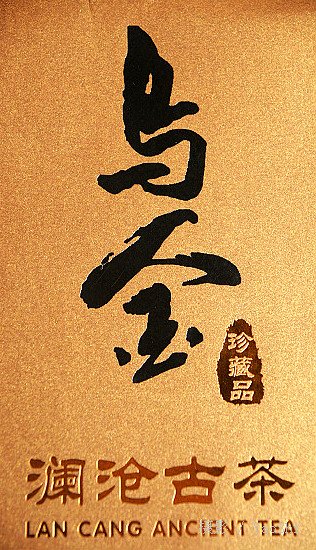 乌金
珍藏品
澜沧古茶
LAN CANG ANCIENT TEA